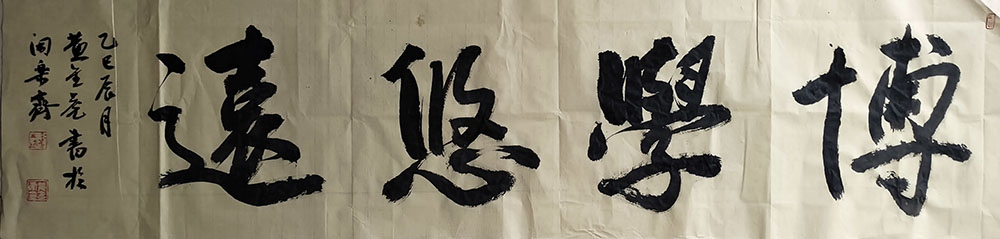 博學悠遠
乙巳辰月
黄金亮書於
闲乐齋